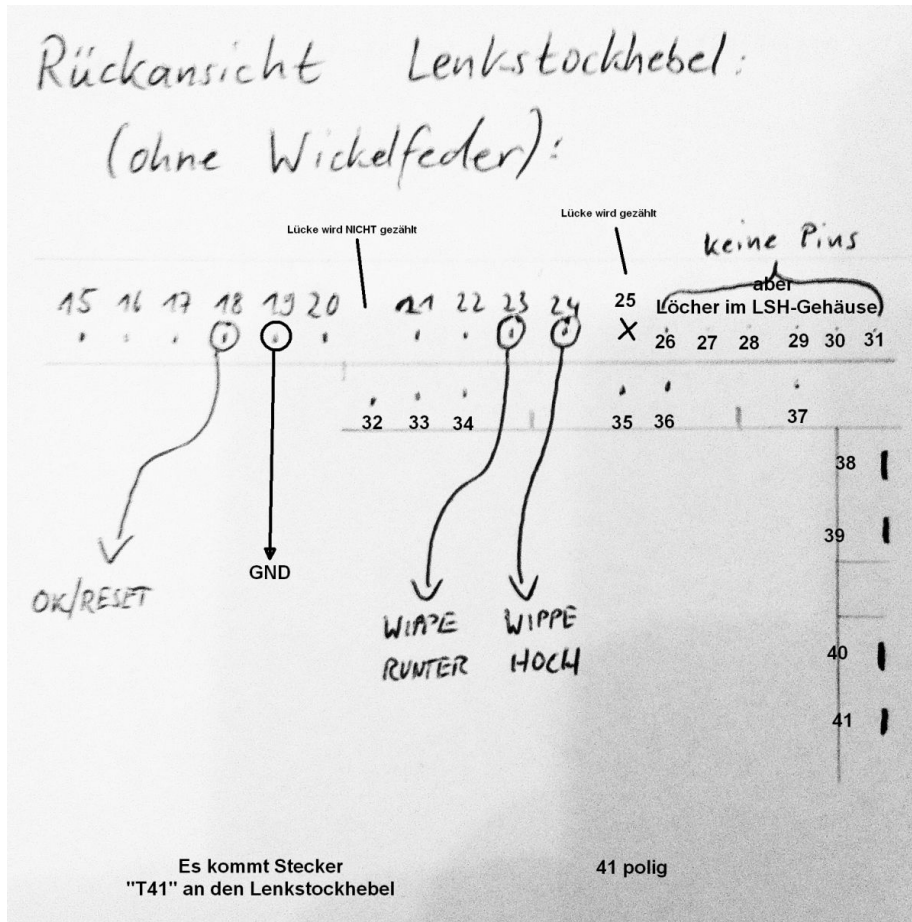 Rückansicht Lenkstockhebel:
(ohne Wickelfeder):
Lücke wird NICHT gezählt
Lücke wird gezählt
keine Pins
aber
Löcher im LSH-Gehäuse
15 16 17 18 19 20 21 22 23 24 25
X
26 27 28 29 30 31
32 33 34 35 36 37
38
39
OK/RESET
GND
WIPPE RUNTER
WIPPE HOCH
40
41
Es kommt Stecker
"T41" an den Lenkstockhebel
41 polig